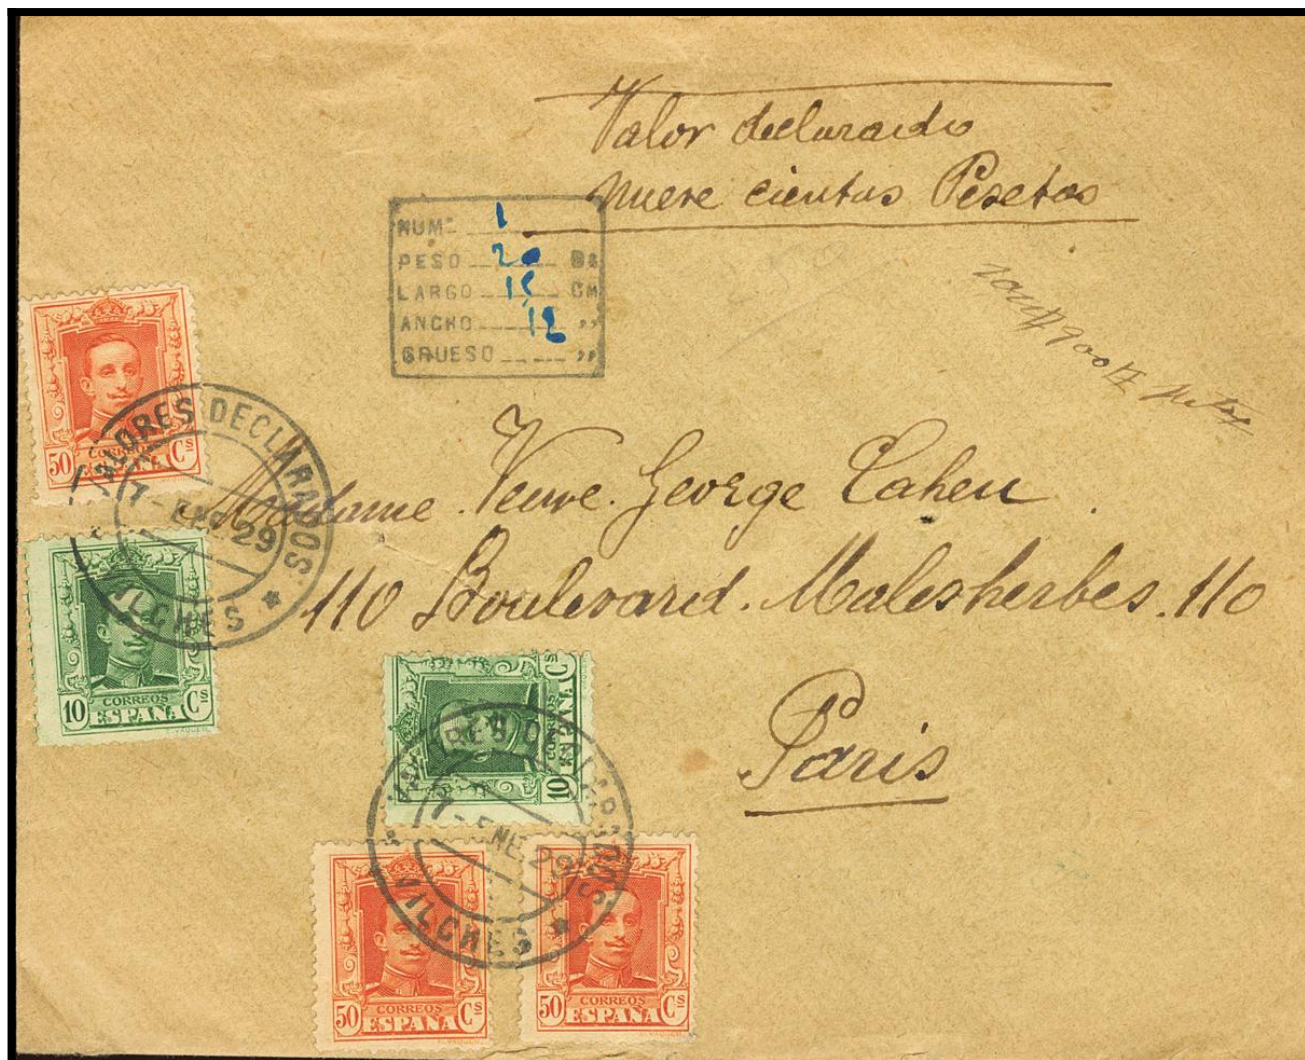 Valor declaraido
nueve cientas Pesetas
NUMº 1
PESO 20 Gs
LARGO 15 CM
ANCHO 12 ,,
GRUESO ,,
50 CORREOS ESPAÑA Cs
VALORES DECLARADOS
7-ENE.29
VILCHES
Madame Veuve. George Cahen.
110 Boulevard. Malesherbes. 110
10 CORREOS ESPAÑA Cs
Paris
10 CORREOS ESPAÑA Cs
VALORES DECLARADOS
7-ENE.29
VILCHES
50 CORREOS ESPAÑA Cs
50 CORREOS ESPAÑA Cs